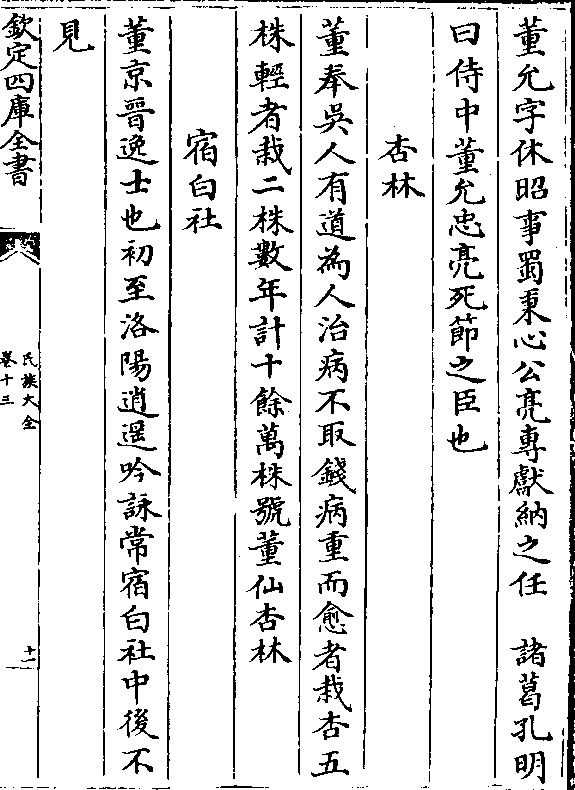 董允字休昭事蜀秉心公亮専獻納之任　諸葛孔明
曰侍中董允忠亮死節之臣也
杏林
董奉吳人有道為人治病不取錢病重而愈者栽杏五
株輕者栽二株數年計十餘萬株號董仙杏林
宿白社
董京晉逸士也初至洛陽逍遥吟詠常宿白社中後不
見
欽定四庫全書
氏族大全
卷十三
十二